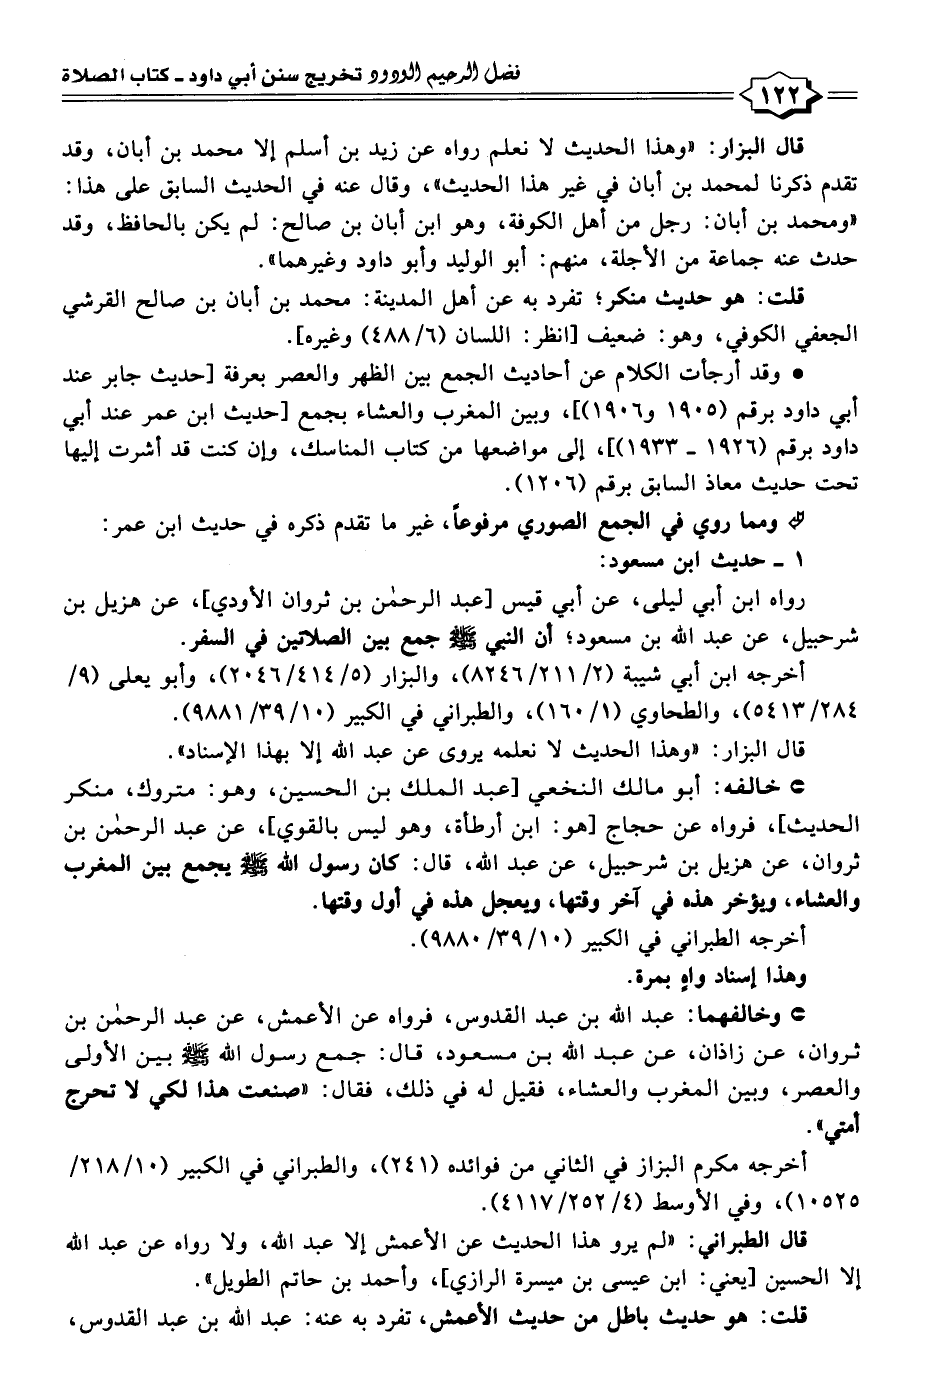 فضل الرحيم الودود تخريج سنن أبي داود - كتاب الصلاة
١٢٢
قال البزار: «وهذا الحديث لا نعلم رواه عن زيد بن أسلم إلا محمد بن أبان، وقد
تقدم ذكرنا لمحمد بن أبان في غير هذا الحديث»، وقال عنه في الحديث السابق على هذا:
«ومحمد بن أبان: رجل من أهل الكوفة، وهو ابن أبان بن صالح: لم يكن بالحافظ، وقد
حدث عنه جماعة من الأجلة، منهم: أبو الوليد وأبو داود وغيرهما».
قلت: هو حديث منكر؛ تفرد به عن أهل المدينة: محمد بن أبان بن صالح القرشي
الجعفي الكوفي، وهو: ضعيف [انظر: اللسان (٤٨٨/٦) وغيره].
• وقد أرجأت الكلام عن أحاديث الجمع بين الظهر والعصر بعرفة [حديث جابر عند
أبي داود برقم (١٩٠٥ و١٩٠٦)]، وبين المغرب والعشاء بجمع [حديث ابن عمر عند أبي
داود برقم (١٩٢٦ - ١٩٣٣)]، إلى مواضعها من كتاب المناسك، وإن كنت قد أشرت إليها
تحت حديث معاذ السابق برقم (١٢٠٦).
ومما روي في الجمع الصوري مرفوعاً، غير ما تقدم ذكره في حديث ابن عمر:
١ - حديث ابن مسعود:
رواه ابن أبي ليلى، عن أبي قيس [عبد الرحمٰن بن ثروان الأودي]، عن هزيل بن
شرحبيل، عن عبد الله بن مسعود؛ أن النبي ﷺ جمع بين الصلاتين في السفر.
أخرجه ابن أبي شيبة (٨٢٤٦/٢١١/٢)، والبزار (٢٠٤٦/٤١٤/٥)، وأبو يعلى (٩/
٥٤١٣/٢٨٤)، والطحاوي (١٦٠/١)، والطبراني في الكبير (٩٨٨١/٣٩/١٠).
قال البزار: «وهذا الحديث لا نعلمه يروى عن عبد الله إلا بهذا الإسناد».
خالفه: أبو مالك النخعي [عبد الملك بن الحسين، وهو: متروك، منكر
الحديث]، فرواه عن حجاج [هو: ابن أرطأة، وهو ليس بالقوي]، عن عبد الرحمٰن بن
ثروان، عن هزيل بن شرحبيل، عن عبد الله، قال: كان رسول الله ﷺ يجمع بين المغرب
والعشاء، ويؤخر هذه في آخر وقتها، ويعجل هذه في أول وقتها.
أخرجه الطبراني في الكبير (٩٨٨٠/٣٩/١٠).
وهذا إسناد واهٍ بمرة.
وخالفهما: عبد الله بن عبد القدوس، فرواه عن الأعمش، عن عبد الرحمٰن بن
ثروان، عن زاذان، عن عبد الله بن مسعود، قال: جمع رسول الله ﷺ بين الأولى
والعصر، وبين المغرب والعشاء، فقيل له في ذلك، فقال: «صنعت هذا لكي لا تحرج
أمتي».
أخرجه مكرم البزاز في الثاني من فوائده (٢٤١)، والطبراني في الكبير (٢١٨/١٠/
١٠٥٢٥)، وفي الأوسط (٤١١٧/٢٥٢/٤).
قال الطبراني: «لم يرو هذا الحديث عن الأعمش إلا عبد الله، ولا رواه عن عبد الله
إلا الحسين [يعني: ابن عيسى بن ميسرة الرازي]، وأحمد بن حاتم الطويل».
قلت: هو حديث باطل من حديث الأعمش، تفرد به عنه: عبد الله بن عبد القدوس،